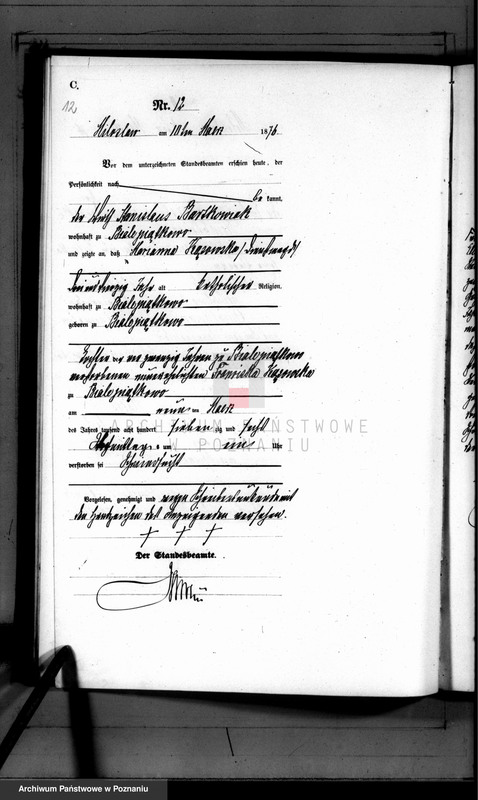 C.
12
Nr. 12
Miloslaw am 10ten März 1876
Vor dem unterzeichneten Standesbeamten erschien heute, der
Persönlichkeit nach be kannt,
der Stanislaus Bartkowiak
wohnhaft zu Bialopiątkowo
und zeigte an, daß Marianna Kąsowska, Dienstmagd
dreiundzwanzig Jahr alt katholischer Religion,
wohnhaft zu Bialopiątkowo
geboren zu Bialopiątkowo
Tochter der vor zwanzig Jahren zu Bialopiątkowo
verstorbenen unverehelichten Franciska Kąsowska
zu Bialopiątkowo
am neun ten März
des Jahres tausend acht hundert sieben zig und sechs
Vormittags um ein Uhr
verstorben sei Schwindsucht
Vorgelesen, genehmigt und wegen Schreibensunkunde mit
den Handzeichen des Anzeigenden versehen.
† † †
Der Standesbeamte.
ARCHIWUM PAŃSTWOWE
W POZNANIU
Archiwum Państwowe w Poznaniu